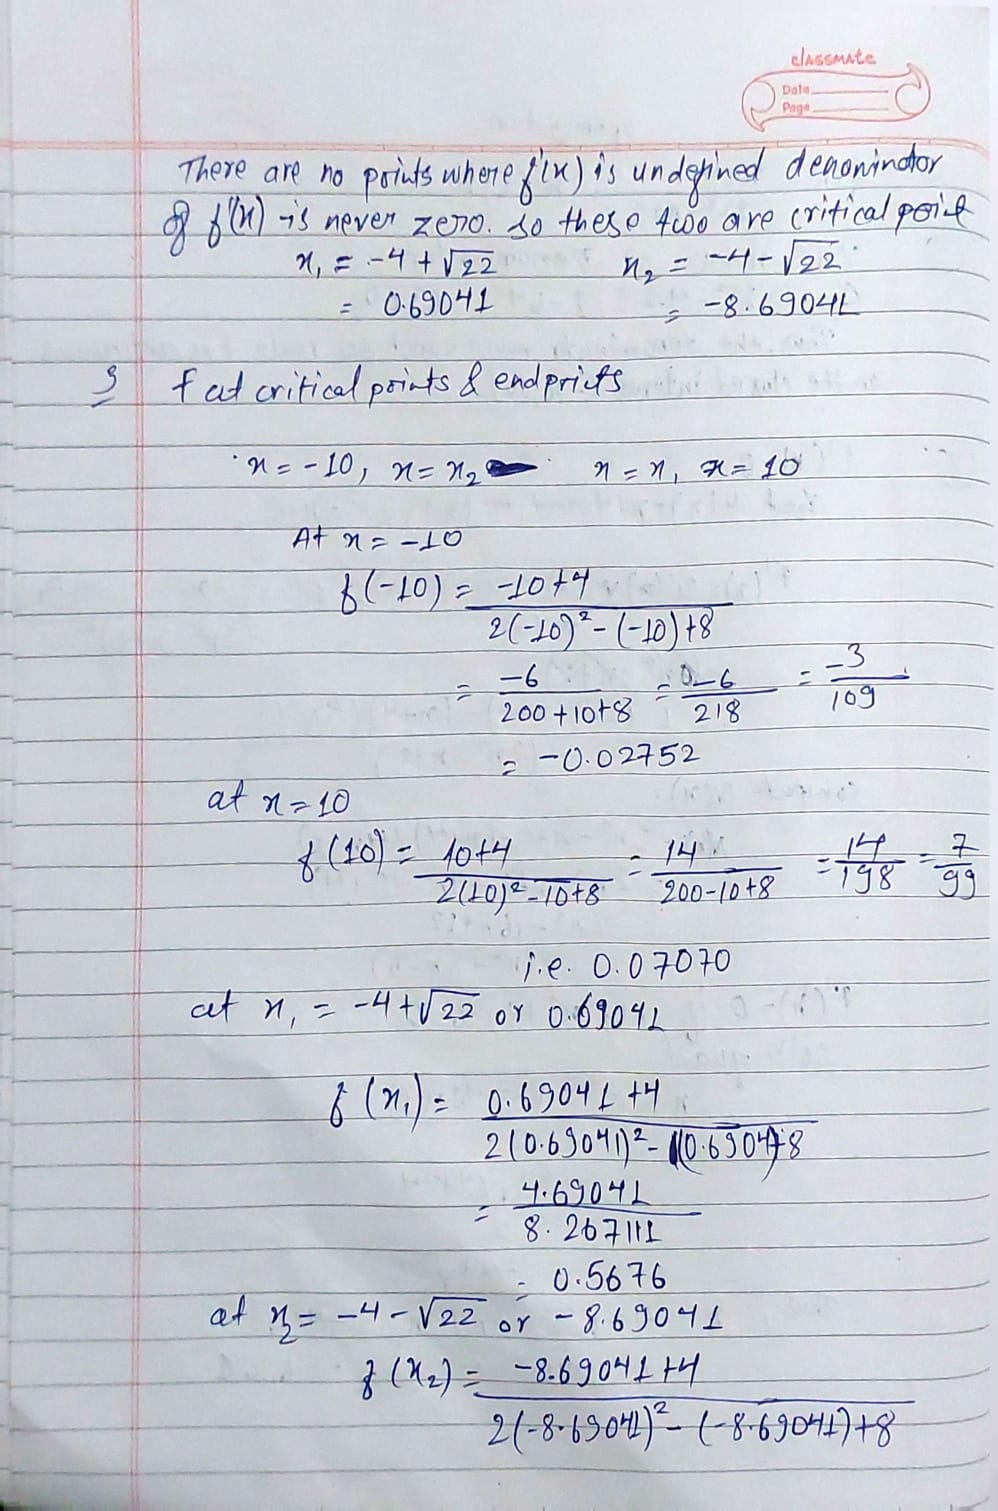 classmate
Date
Page
There are no points where f'(x) is undefined denominator
of f'(x) is never zero. so these two are critical point
x₁ = -4 + √22 x₂ = -4 - √22
= 0.69041 = -8.69041
3 f at critical points & endpoints
x = -10, x = x₂ x = x₁ x = 10
At x = -10
f(-10) = -10+4 / 2(-10)² - (-10)+8
= -6 / 200+10+8 = -6 / 218 = -3 / 109
= -0.02752
at x = 10
f(10) = 10+4 / 2(10)² - 10+8 = 14 / 200-10+8 = 14 / 198 = 7 / 99
i.e. 0.07070
at x₁ = -4+√22 or 0.69041
f(x₁) = 0.69041 +4 / 2(0.69041)² - (0.69041)+8
= 4.69041 / 8.267111
= 0.5676
at x₂ = -4 - √22 or -8.69041
f(x₂) = -8.69041 +4 / 2(-8.69041)² - (-8.69041)+8